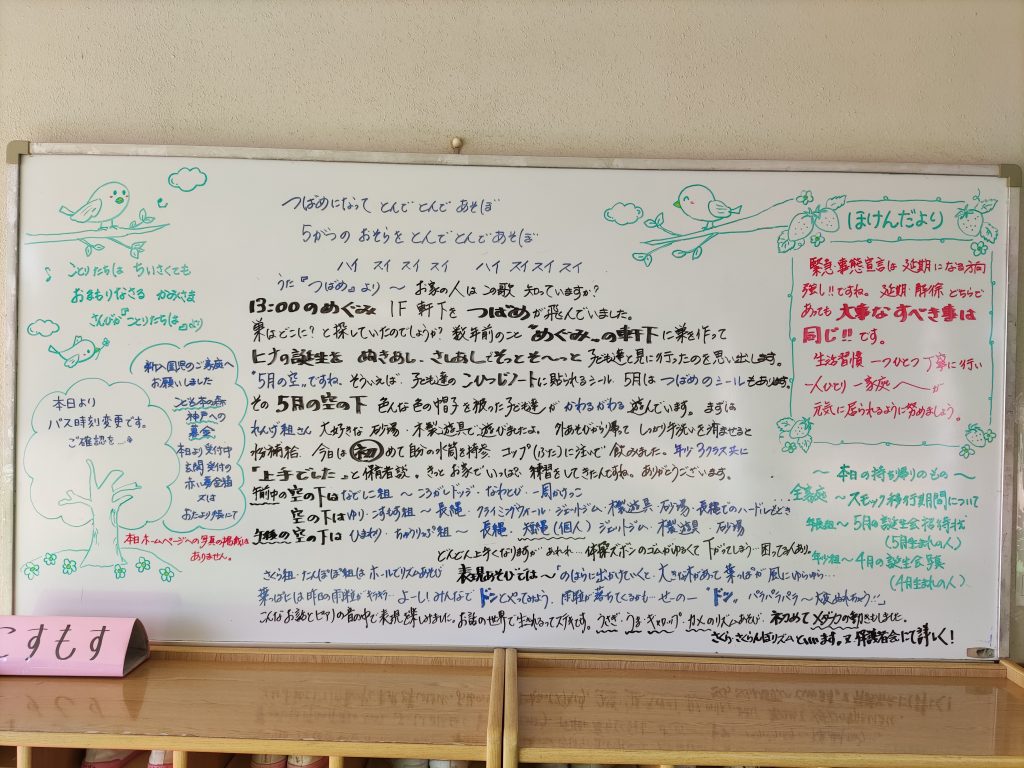 つばめになって とんで とんで あそぼ
5がつの おそらを とんで とんで あそぼ
ハイ スイ スイ スイ ハイ スイ スイ スイ
うた『つばめ』より 〜 お家の人は この歌 知っていますか?
13:00のめぐみ 1F 軒下を つばめが飛んでいました。
巣はどこに?と探していたのでしょうか? 数年前のこと "めぐみ"の軒下に巣を作って
ヒナの誕生を ぬきあし、さしあしでそっとそ〜っと 子ども達と見に行ったのを思い出します。
"5月の空"ですね。そういえば、子ども達の こひつじノートに貼られるシール、5月は つばめのシールもあります。
その 5月の空の下 色んな色の帽子を被った子ども達が かわるがわる 遊んでいます。まずは
れんげ組さん 大好きな 砂場・木製遊具で遊びましたよ。外あそびから帰って しっかり手洗いを済ませると
水分補給 今日は 初めて 自分の水筒を持参 コップ(ふた)に注いで 飲みました。年少3クラス共に
「上手でした」と保育者談。きっとお家でいっぱい 練習をしてきたんですね。ありがとうございます。
午前中の空の下は なでしこ組 〜 ころがしドッジ・なわとび一周かけっこ
空の下は ゆり・こすもす組 〜 長縄・クライミングウォール・ジャングルジム・木製遊具・砂場・長縄でのハードルもどき
午後の空の下は ひまわり・ちゅうりっぷ組 〜 長縄・短縄(個人) ジャングルジム・木製遊具・砂場
どんどん上手くなりますが あれれ…体操ズボンのゴムがゆるくて 下がってしまう…困ってる人あり。
さくら組・たんぽぽ組は ホールでリズムあそび 表現あそびでは〜 "のはらに出かけていくと・大きな木があって 葉っぱが 風にゆらゆら…
葉っぱには 昨日の雨粒が キラキラ… よーし みんなで ドンとやってみよう、雨粒が落ちてくるかも…せーの— "ドン" パラパラパラ〜大変ぬれちゃう!!"
こんなお話とピアノの音の中で 表現を楽しみました。お話の世界で生きれるってステキです。うさぎ、うま・ギャロップ・カメのリズムあそび、初めて メダカの動きもしました。
さくら・さくらんぼリズム といいます。又 保護者会にて詳しく!
♪ ことりたちは ちいさくても
おまもりなさる かみさま
さんびか『ことりたちは』より
本日より
バス時刻変更です。
ご確認を…
新入園児のご家庭へ
お願いしました
こども本の森
神戸への
募金
本日より受付中
玄関受付の
赤い募金箱
又は
おたより袋にて
本日ホームページへの写真の掲載は
ありません。
ほけんだより
緊急事態宣言は 延期になる方向
強し!!ですね。延期・解除どちらで
あっても 大事な すべき事は
同じ!!です。
生活習慣 一つひとつ 丁寧に行い
一人ひとり 一家庭 が
元気に居られるように努めましょう。
〜 本日の持ち帰りのもの 〜
全家庭 〜 スモック移行期間について
年長組 〜 5月の誕生会招待状
(5月生まれの人)
年少組 〜 4月の誕生会写真
(4月生まれの人)
こすもす